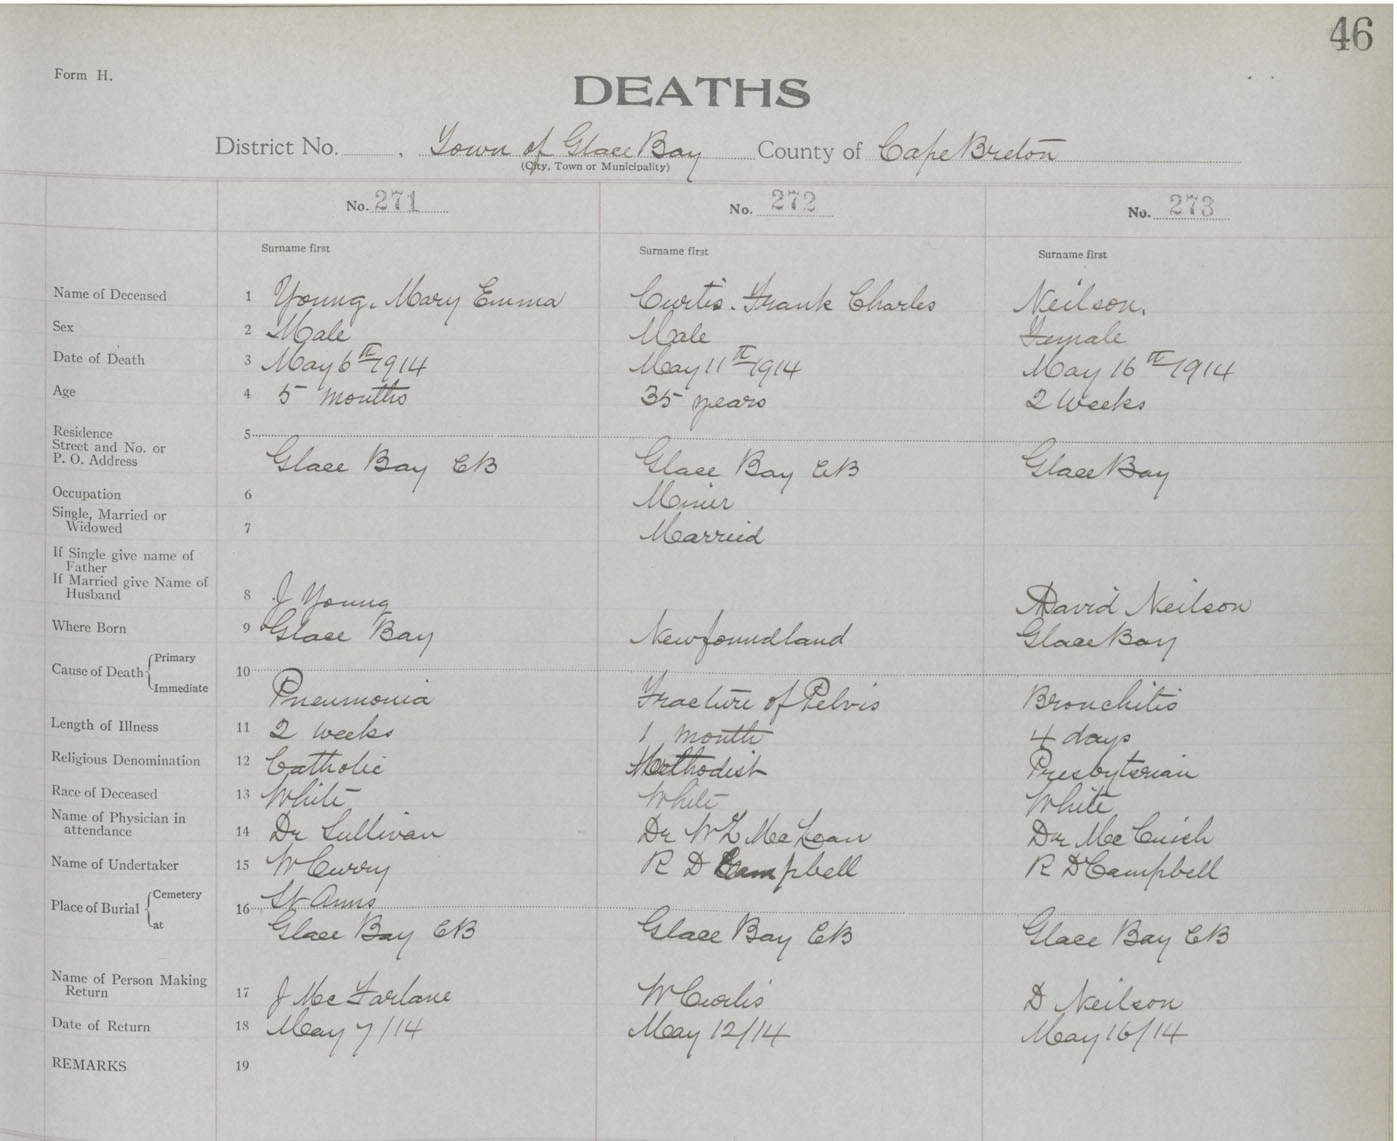 46
Form H.
DEATHS
District No. . Town of Glace Bay County of Cape Breton
(City, Town or Municipality)
No. 271 No. 272 No. 273
Surname first Surname first Surname first
Name of Deceased 1 Young. Mary Emma Curtis. Frank Charles Neilson.
Sex 2 Male Male Female
Date of Death 3 May 6th 1914 May 11th 1914 May 16th 1914
Age 4 5 months 35 years 2 Weeks
Residence 5
Street and No. or
P. O. Address Glace Bay CB Glace Bay CB Glace Bay
Occupation 6 Miner
Single, Married or
Widowed 7 Married
If Single give name of
Father
If Married give Name of
Husband 8 J Young David Neilson
Where Born 9 Glace Bay Newfoundland Glace Bay
Cause of Death Primary 10
Immediate Pneumonia Fracture of Pelvis Bronchitis
Length of Illness 11 2 weeks 1 month 4 days
Religious Denomination 12 Catholic Methodist Presbyterian
Race of Deceased 13 White White White
Name of Physician in
attendance 14 Dr Sullivan Dr W L McLean Dr McCuish
Name of Undertaker 15 W Curry R D Campbell R D Campbell
Place of Burial Cemetery 16 St Anns
at Glace Bay CB Glace Bay CB Glace Bay CB
Name of Person Making
Return 17 J McFarlane W Curtis D Neilson
Date of Return 18 May 7/14 May 12/14 May 16/14
REMARKS 19